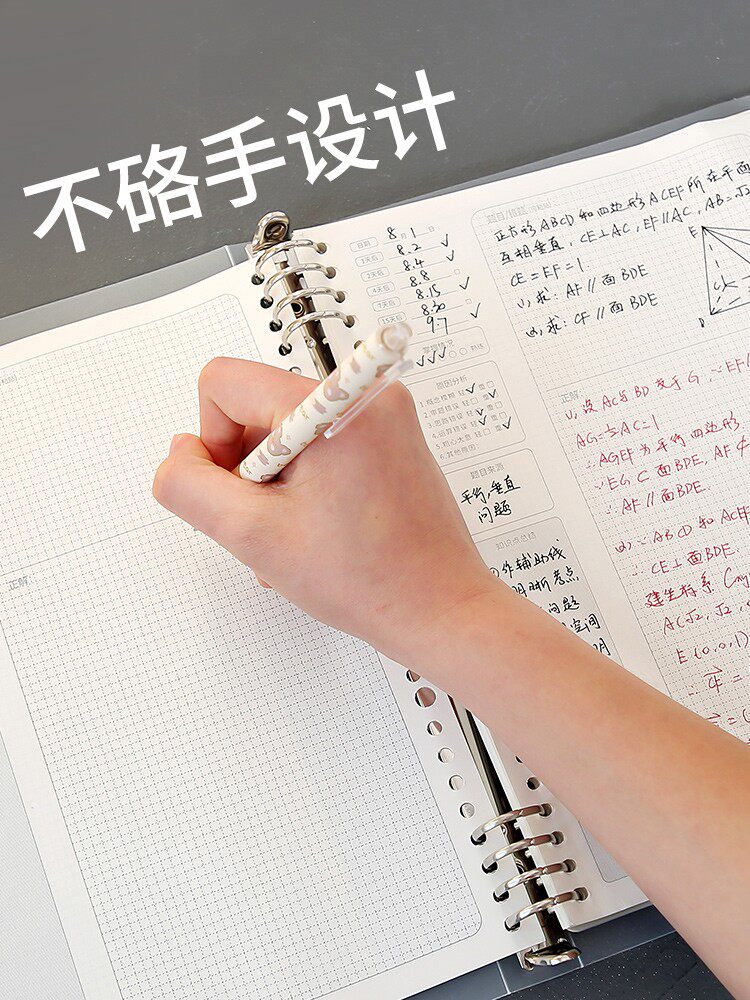 不硌手设计
日期 8月1日
1天后 8.2 ✓
2天后 8.4 ✓
4天后 8.8
7天后 8.15 ✓
15天后 8.30
9.7 ✓
掌握情况
✓✓✓○○ 熟练
原因分析
1.概念模糊 轻□ 重□
2.审题错误 轻□ 重□
3.思路错误 轻□ 重□
4.运算错误 轻□ 重□
5.粗心大意 轻□ 重□
6.其他原因
题目来源
平行,垂直
问题
知识点总结
作辅助线
明晰考点
问题
空间
题目/错题
正方形ABCD和四边形ACEF所在平面
互相垂直,CE⊥AC,EF∥AC,AB=√2
CE=EF=1
(1)求:AF∥面BDE
(2)求:CF⊥面BDE
E
D
正解
(1)设AC与BD交于G,∵EF∥
AG=½AC=1
∴AGEF为平行四边形
∵EG⊂面BDE,AF⊄
∴AF∥面BDE.
(2)∵ABCD和ACEF
∴CE⊥面BDE.
建坐标系
A(√2,√2,
E(0,0,1)
正解